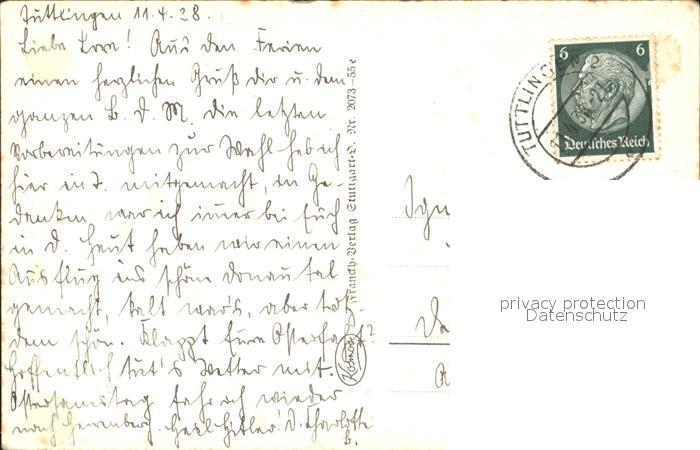 Tuttlingen 11.4.38.
Liebe Lore! Aus den Ferien
einen herzlichen Gruß dir u. dem
ganzen B. d. M. Die letzten
Vorbereitungen zur Wahl hab ich
hier in T. mitgemacht, in Ge-
danken war ich immer bei Euch
in D. Heut haben wir einen
Ausflug ins schöne Donautal
gemacht, kalt war's, aber trotz
dem schön. Klappt Eure Osterfahrt?
Hoffentlich tut's Wetter mit.
Ostersamstag fahr ich wieder
nach Herrenberg. Heil Hitler! D. Charlotte
B.
Franckh-Verlag Stuttgart-O. Nr. 2073-55e
Kosmos
TUTTLINGEN
6 6
Deutsches Reich
privacy protection
Datenschutz